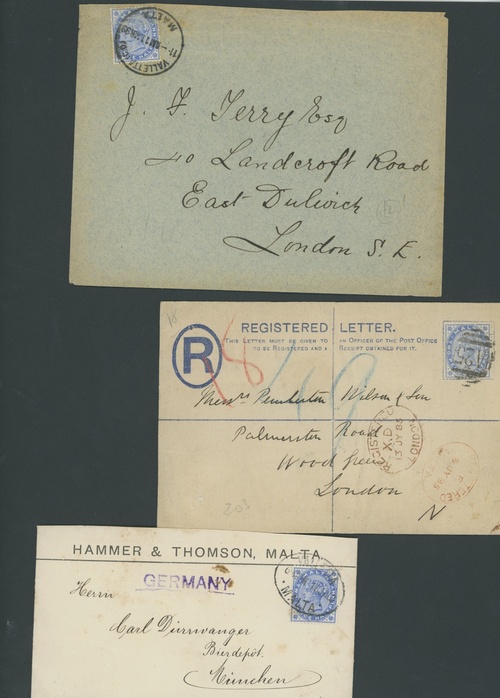 VALLETTA
MALTA
J. F. Terry Esq
40 Landcroft Road
East Dulwich
London S. E.
12
18
REGISTERED LETTER.
THIS LETTER MUST BE GIVEN TO AN OFFICER OF THE POST OFFICE
TO BE REGISTERED AND A RECEIPT OBTAINED FOR IT.
R
Messrs Pemberton Wilson & Son
Palmerston Road
Wood Green
London
N
REGISTERED
LONDON
X.D
13 JY 85
203
HAMMER & THOMSON, MALTA.
GERMANY
MALTA
Herrn
Carl Dürrwanger
Bierdepôt.
München